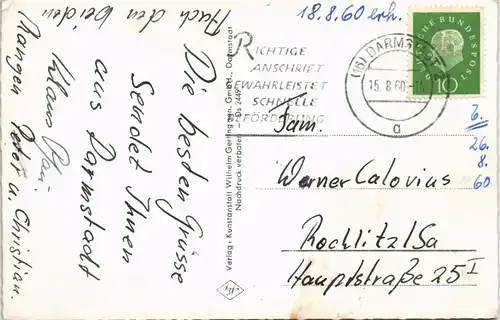 18.8.60 erh.
Auch den beiden
Die besten Grüsse
Sendet Ihnen
aus Darmstadt
Klaus
Mangen Peter u. Christian.
Verlag: Kunstanstalt Wilhelm Gerling GmbH., Darmstadt
Nachdruck verboten
RICHTIGE
ANSCHRIFT
GEWÄHRLEISTET
SCHNELLE
BEFÖRDERUNG
(16) DARMSTADT
15.8.60
a
DEUTSCHE BUNDESPOST
10
Fam.
Werner Calovius
Rochlitz/Sa
Hauptstraße 25 I
26.
8.
60